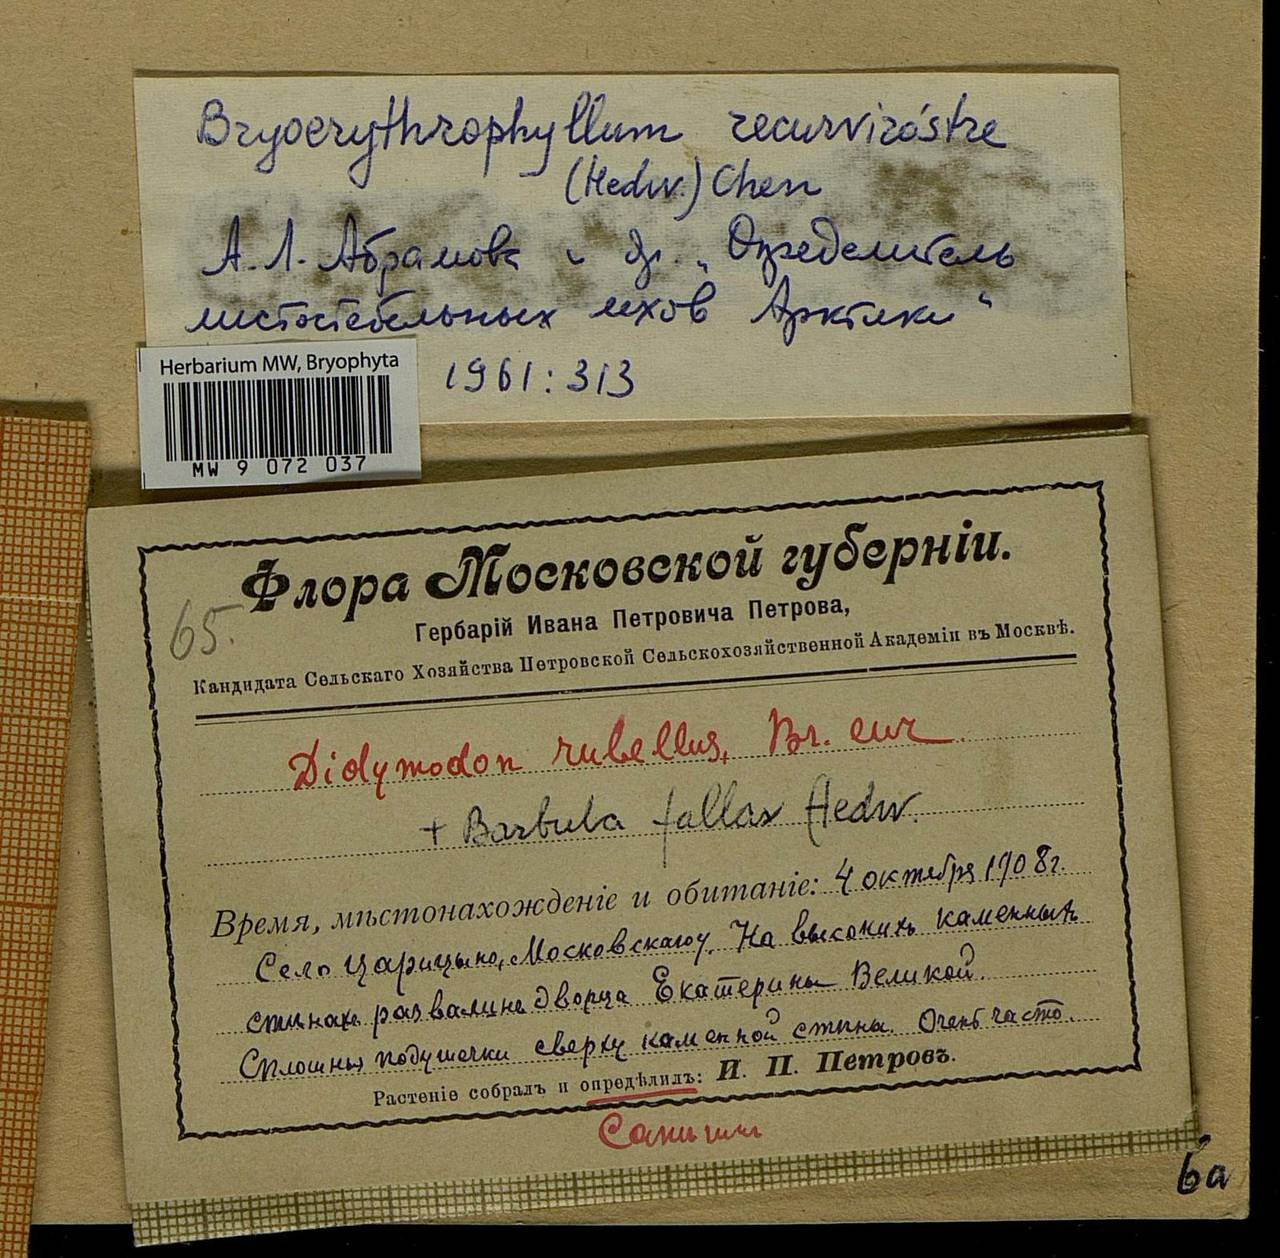 Bryoerythrophyllum recurviróstre
(Hedw.) Chen
А.Л. Абрамова и др. „Определитель
листостебельных мхов Арктики"
1961:313
Herbarium MW, Bryophyta
MW 9 072 037
Флора Московской губерніи.
65.
Гербарій Ивана Петровича Петрова,
Кандидата Сельскаго Хозяйства Петровской Сельскохозяйственной Академіи въ Москвѣ.
Didymodon rubellus, Br. eur
+ Barbula fallax Hedw.
Время, мѣстонахожденіе и обитаніе: 4 октября 1908г.
Село Царицыно, Московскагоу. На высокихъ каменныхъ
стѣнахъ развалинъ дворца Екатерины Великой.
Сплошныя подушечки сверху каменной стѣны. Очень часто.
Растеніе собралъ и опредѣлилъ: И. П. Петровъ.
6a